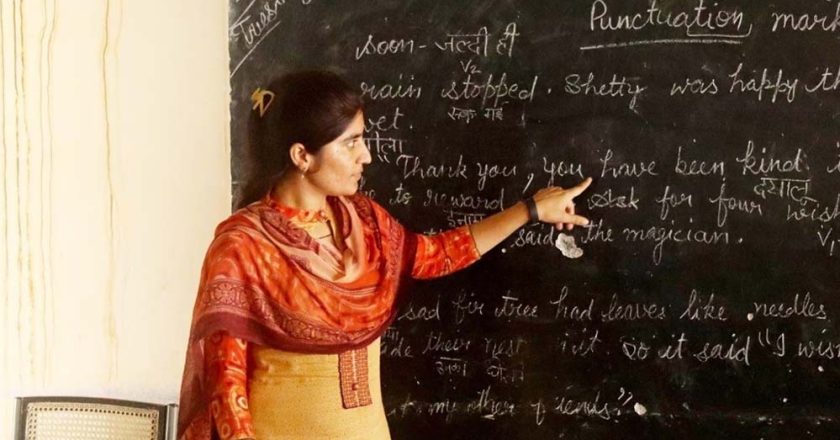 Punctuation, mark
soon - जल्दी ही
V2
rain stopped. Shetty was happy th
रूक गई
wet.
"Thank you, you have been kind.
दयालु
to reward for four wis
इनाम
V1
said the magician.
sad fir tree had leaves like needles
their nest in it. So it said "I wis
उनका
to my other friends".